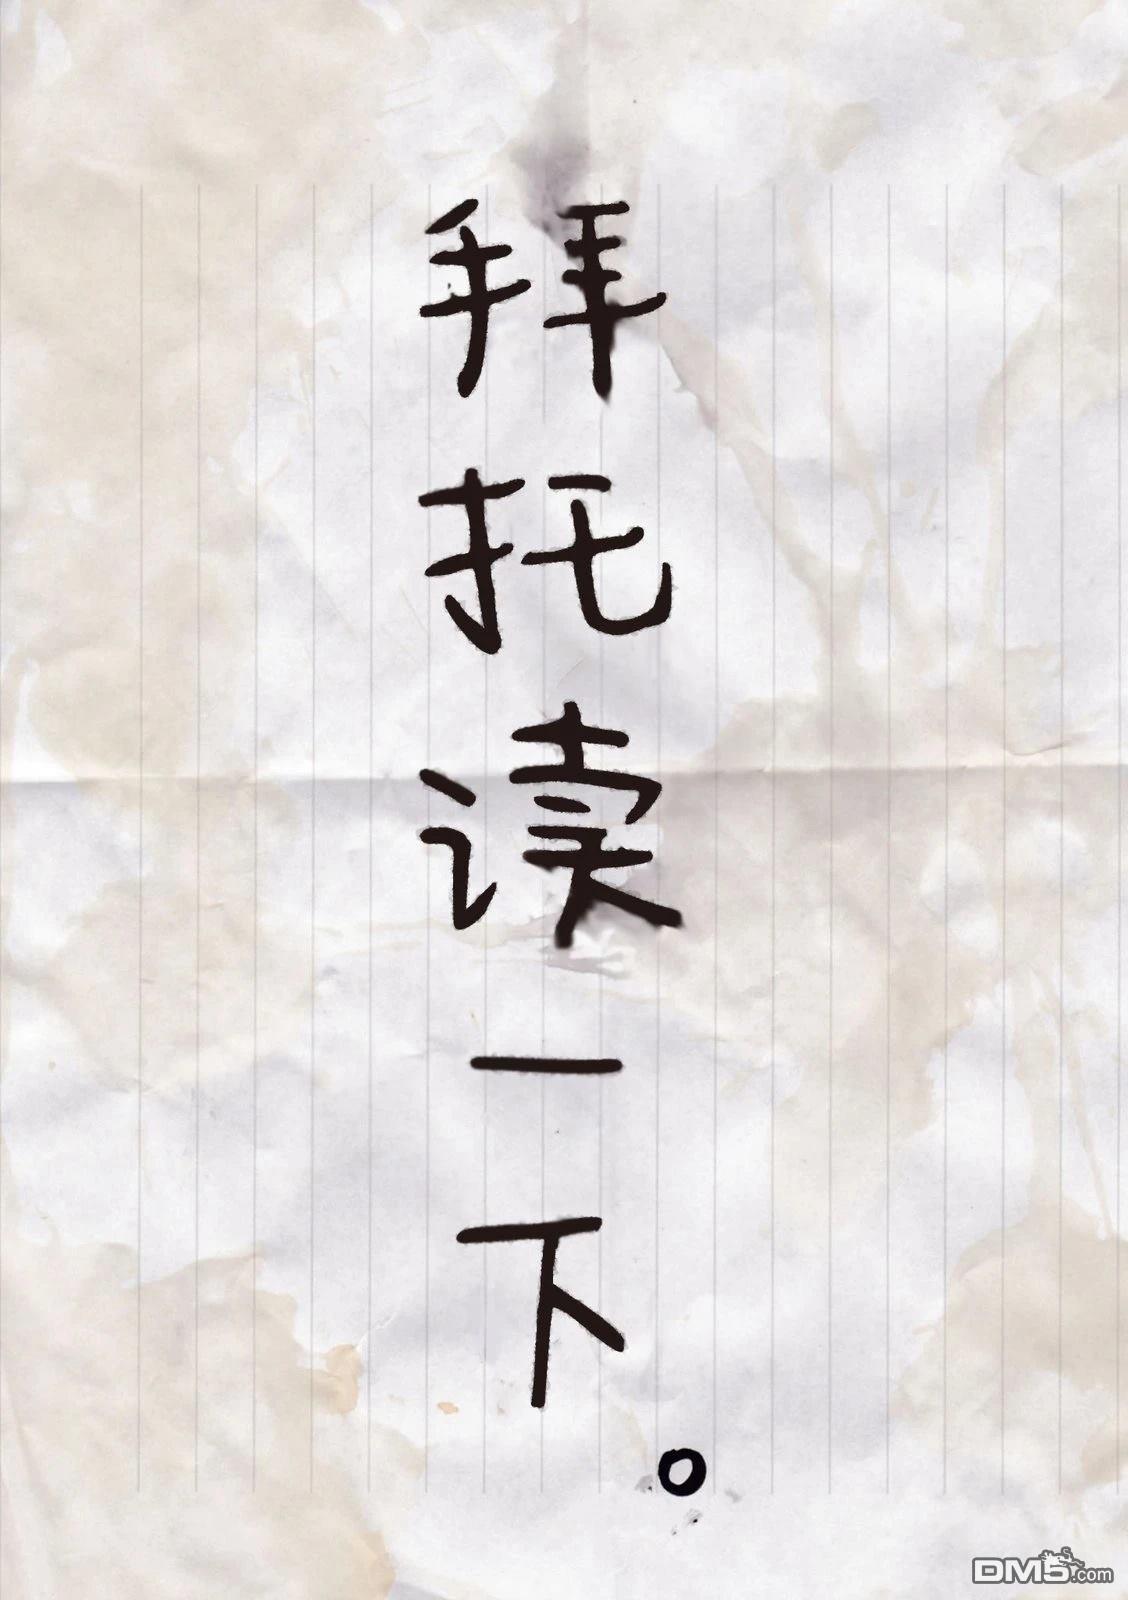 拜托读一下。
DM5.com